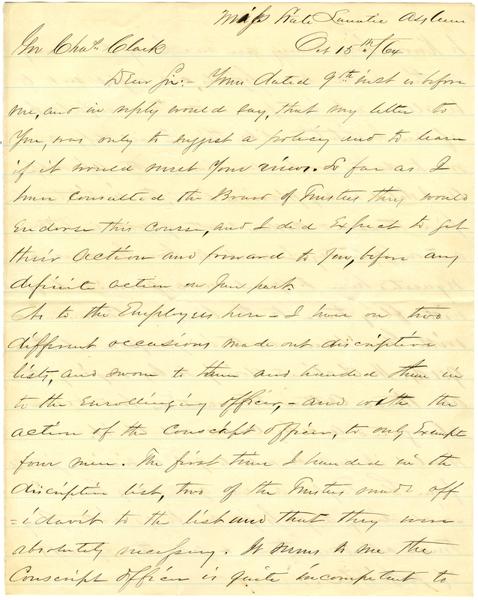 Miss State Lunatic Asylum
Gov Chas. Clark Oct 15th/64
Dear Sir: Yours dated 9th inst is before
me, and in reply would say, that my letter to
You, was only to suggest a policy and to learn
if it would meet Your views. So far as I
have consulted the Board of Trustees they would
endorse this course, and I did Expect to get
their action and forward to You, before any
difinite action on Your part.
As to the Employees here - I have on two
different occasions made out discriptive
lists, and sworn to them and handed them in
to the Enrollinging officer, - and with the
action of the Conscript officer, to only Exempt
four men. The first time I handed in the
discriptive list, two of the Trustees made aff
=idavit to the list and that they were
absolutely necessary. It seems to me the
Conscript officer is quite incompetent to